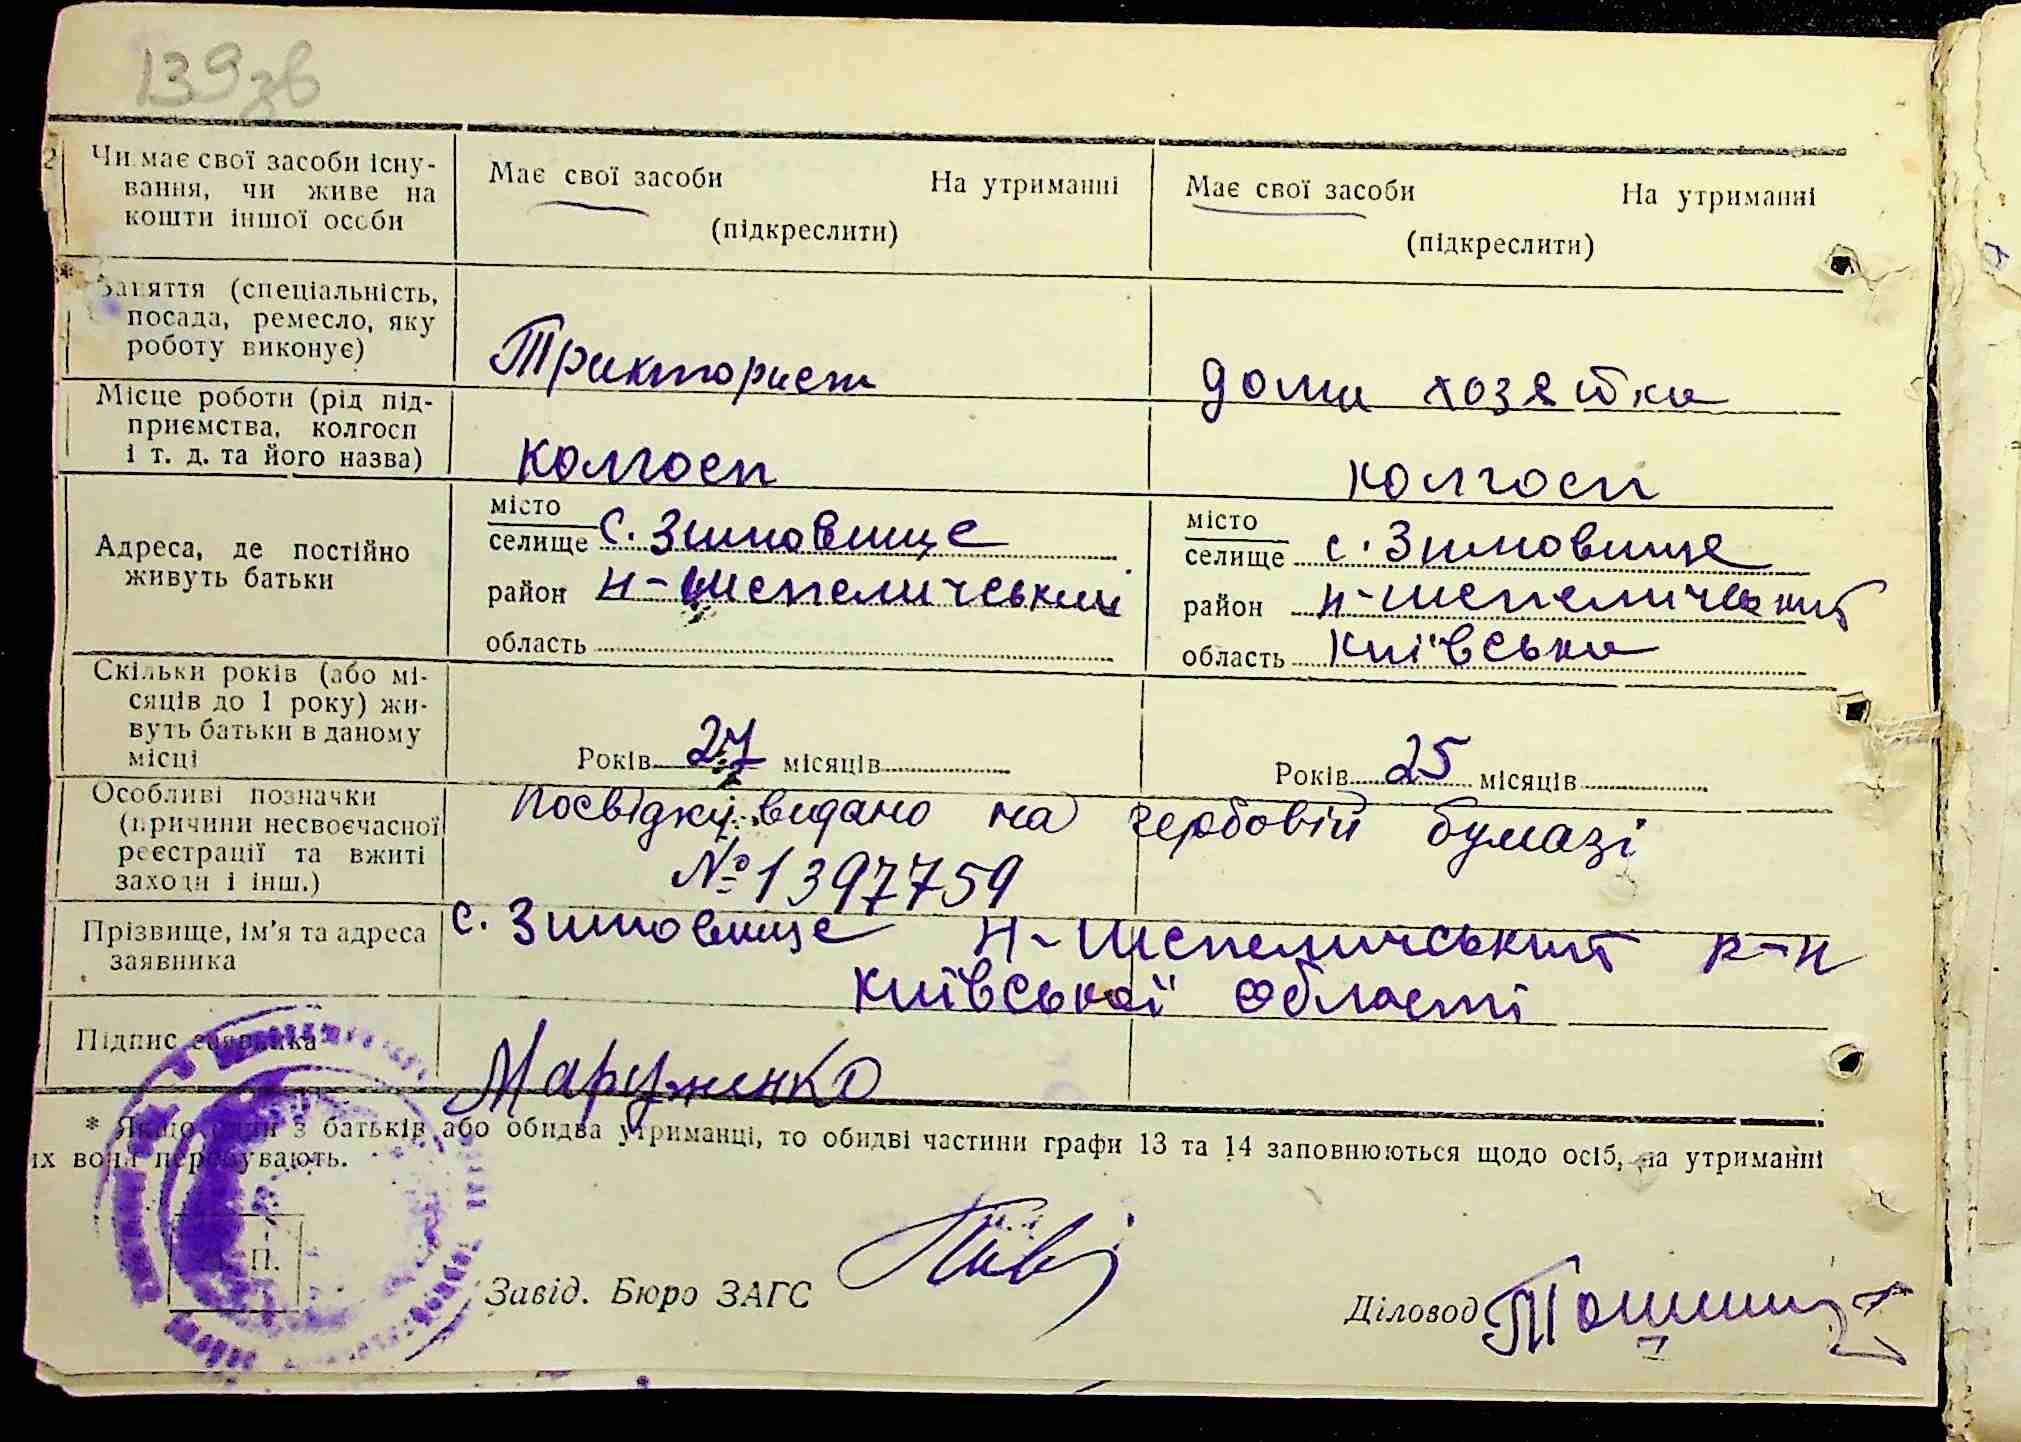 139зв
Чи має свої засоби існу-
вання, чи живе на
кошти іншої особи
Має свої засоби На утриманні
(підкреслити)
Має свої засоби На утриманні
(підкреслити)
Заняття (спеціальність,
посада, ремесло, яку
роботу виконує)
Тракторист
дома хозяйка
Місце роботи (рід під-
приємства, колгосп
і т. д. та його назва)
колгосп
колгосп
Адреса, де постійно
живуть батьки
місто
селище с. Зимовище
район Н-Шепеличський
область
місто
селище с. Зимовище
район Н-Шепеличський
область Київська
Скільки років (або мі-
сяців до 1 року) жи-
вуть батьки в даному
місці
Років 27 місяців
Років 25 місяців
Особливі позначки
(причини несвоєчасної
реєстрації та вжиті
заходи і інш.)
Посвідку видано на гербовій бумазі
№ 1397759
Прізвище, ім'я та адреса
заявника
с. Зимовище Н-Шепеличський р-н
Київської області
Підпис заявника
Маруженко
* Якщо один з батьків або обидва утриманці, то обидві частини графи 13 та 14 заповнюються щодо осіб, на утриманні
их вони перебувають.
П.
Завід. Бюро ЗАГС
Діловод